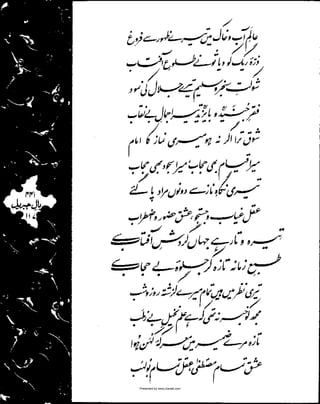 عالمِ آب و خاک میں تیرے ظہور سے فروغ
ذرّۂ ریگ کو دیا تُو نے طلوعِ آفتاب
شوکتِ سنجر و سلیم تیرے جلال کی نمود
فقرِ جنیدؒ و بایزیدؒ تیرا جمالِ بے نقاب
شوق ترا اگر نہ ہو میری نماز کا امام
میرا قیام بھی حجاب! میرا سجود بھی حجاب!
تیری نگاہِ ناز سے دونوں مراد پا گئے
عقل غیاب و جستجو! عشق حضور و اضطراب!
تیرہ و تار ہے جہاں گردشِ آفتاب سے
طبعِ زمانہ تازہ کر جلوۂ بے حجاب سے
تیری نظر میں ہیں تمام میرے گزشتہ روز و شب
مجھ کو خبر نہ تھی کہ ہے علم نخیلِ بے رطب
تازہ مرے ضمیر میں معرکۂ کہن ہوا
عشق تمام مصطفیٰ! عقل تمام بولہب!
۴۴۱
بالِ جبریل
۱۱۷